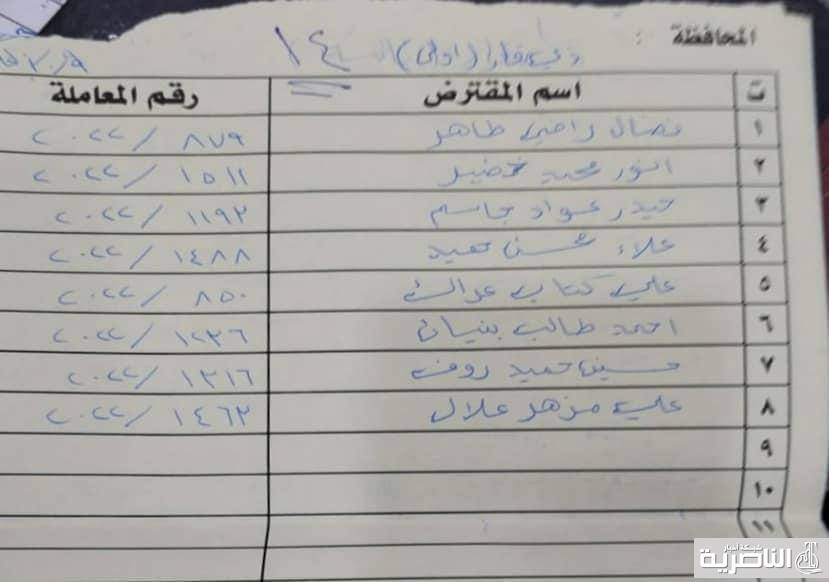 المحافظة : ذي قار (اولى) ١٤
ت اسم المقترض رقم المعاملة
١ نضال راضي طاهر ٨٧٩ / ٢٠٢٢
٢ انور محمد خضير ١٥١١ / ٢٠٢٢
٣ حيدر عواد جاسم ١١٩٢ / ٢٠٢٢
٤ علاء محسن حميد ١٤٨٨ / ٢٠٢٢
٥ علي كتاب ٨٥٠ / ٢٠٢٢
٦ احمد طالب بنيان ١٢٣٦ / ٢٠٢٢
٧ حسين حميد روف ١٣١٦ / ٢٠٢٢
٨ علي مزهر علال ١٤٦٢ / ٢٠٢٢
٩
١٠
١١
شبكة أخبار
الناصرية